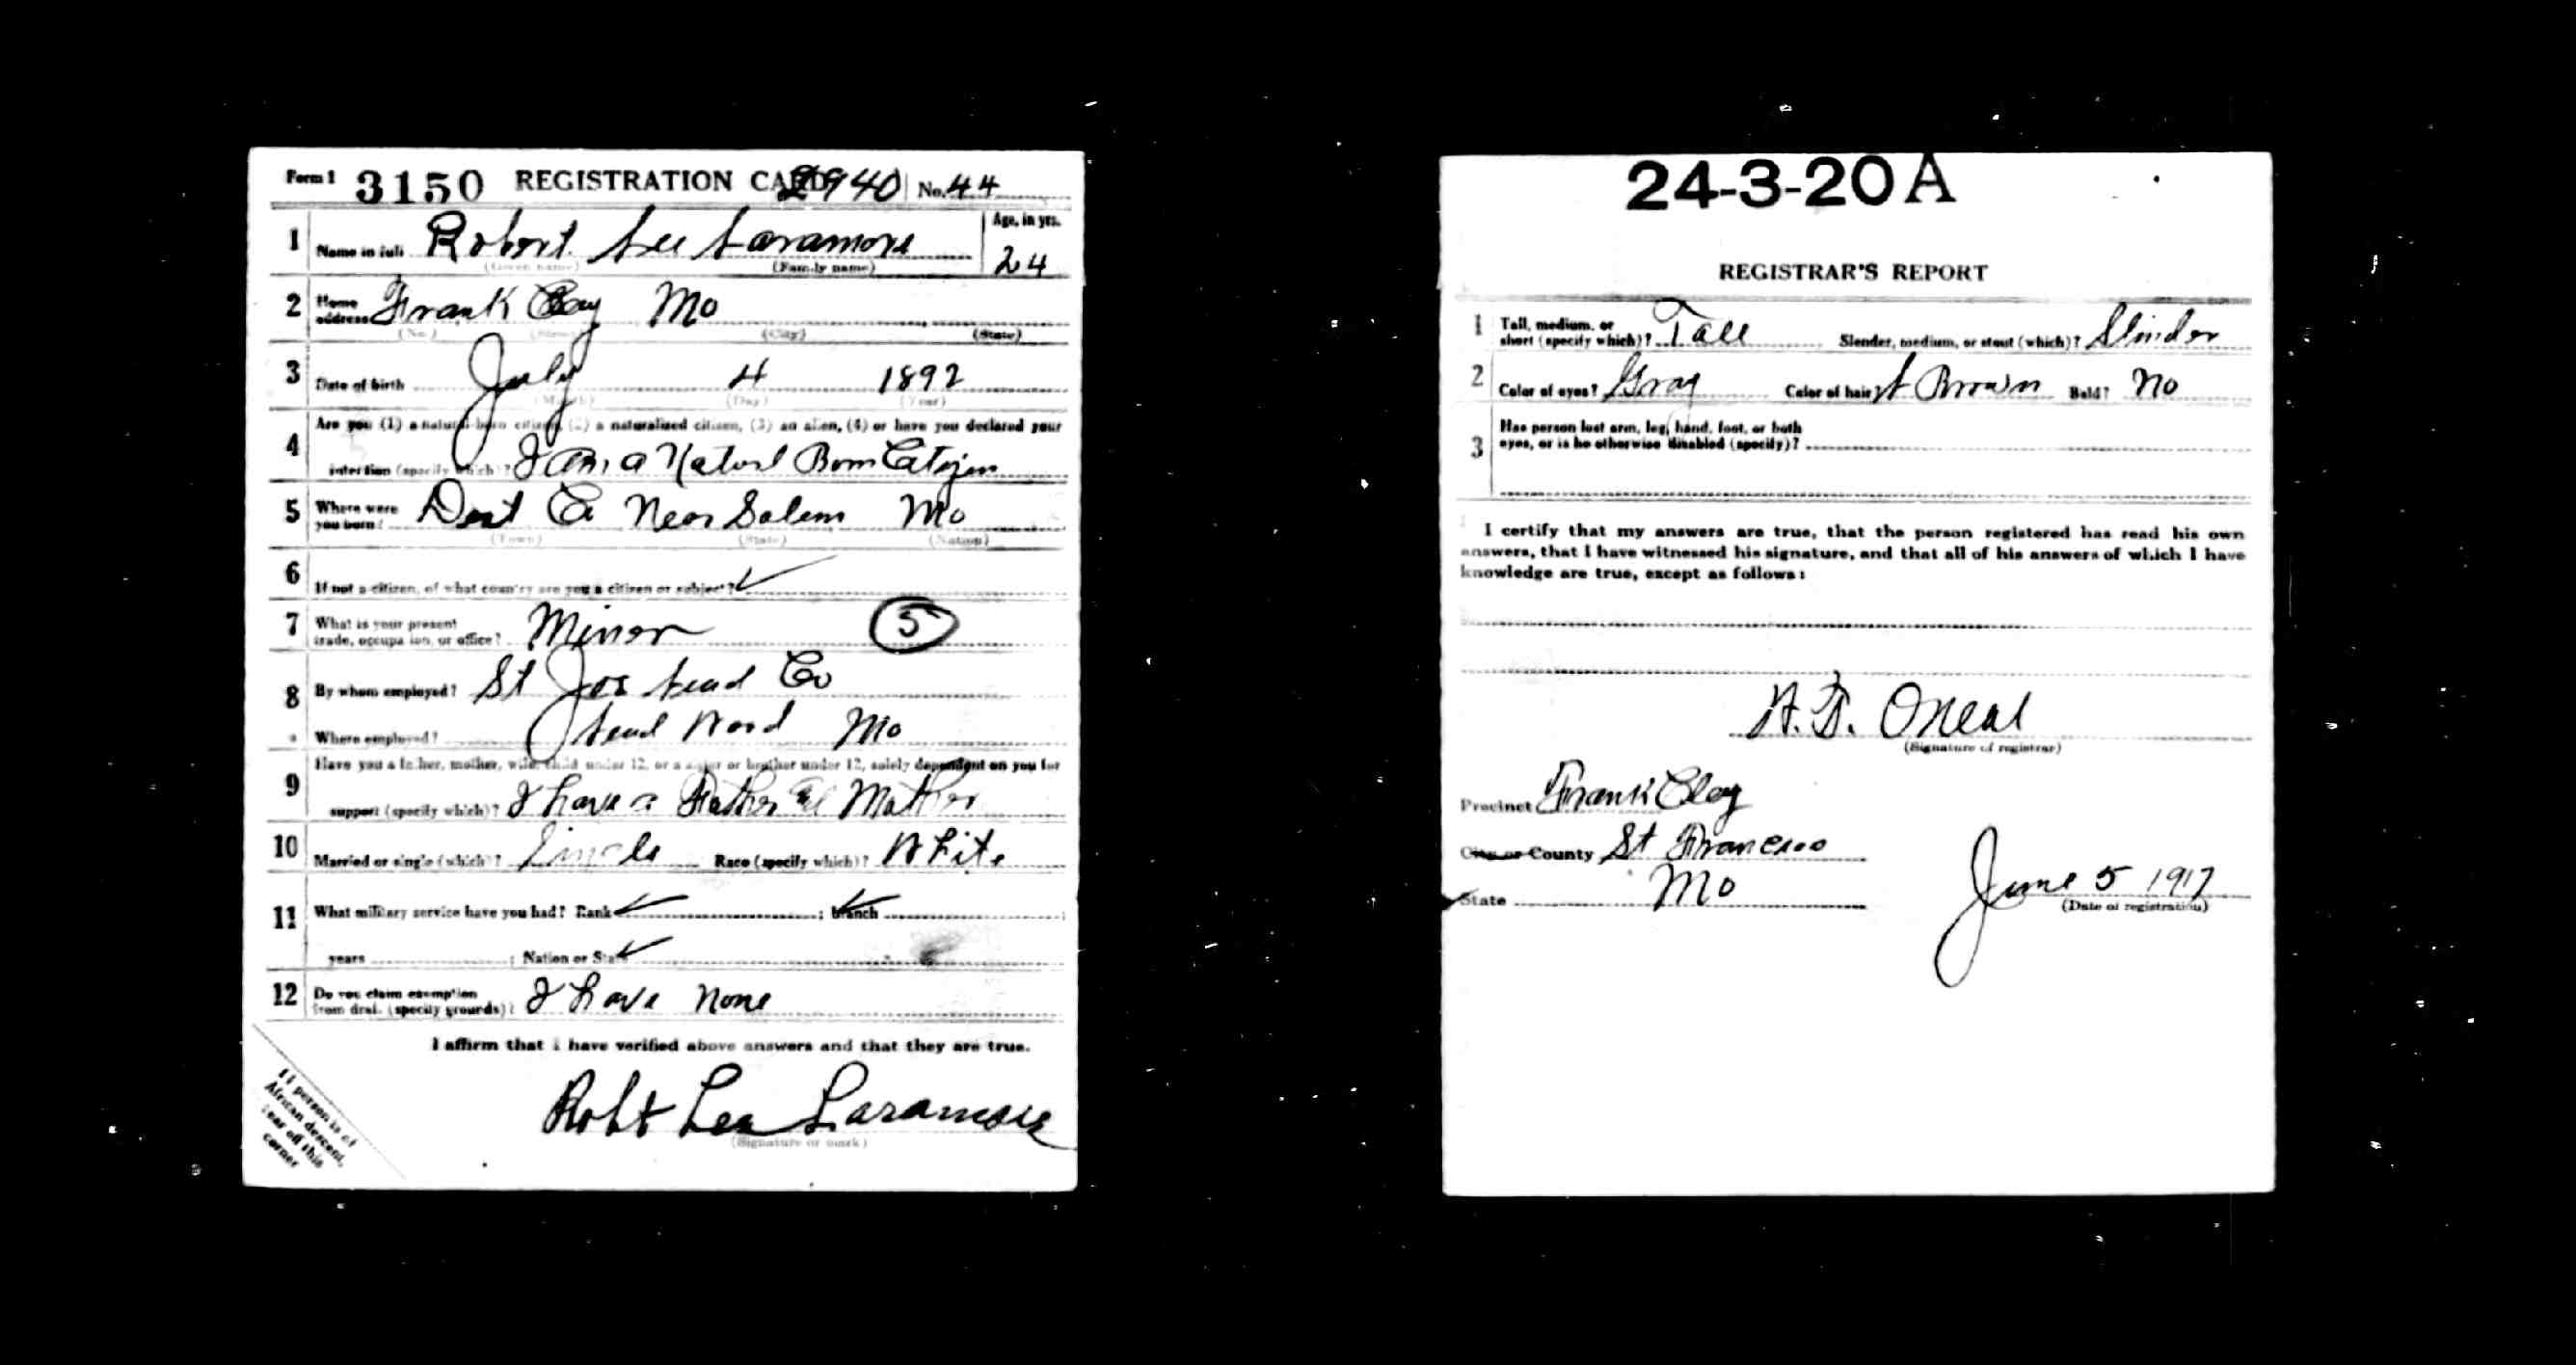 Form 1 3150 REGISTRATION CARD 2940 No. 44
1 Name in full Robert Lee Laramore Age, in yrs.
(Given name) (Family name) 24
2 Home address Frank Clay Mo
(No.) (Street) (City) (State)
3 Date of birth July 4 1892
(Month) (Day) (Year)
4 Are you (1) a natural-born citizen, (2) a naturalized citizen, (3) an alien, (4) or have you declared your
intention (specify which)? I am a Naturl Born Citizen
5 Where were you born? Dent Co Near Salem Mo
(Town) (State) (Nation)
6 If not a citizen, of what country are you a citizen or subject?
7 What is your present trade, occupation, or office? Minor 5
8 By whom employed? St Joe Lead Co
Where employed? Lead Wood Mo
9 Have you a father, mother, wife, child under 12, or a sister or brother under 12, solely dependent on you for
support (specify which)? I have a Father & Mother
10 Married or single (which)? Single Race (specify which)? White
11 What military service have you had? Rank ; branch ;
years ; Nation or State
12 Do you claim exemption from draft (specify grounds)? I have None
I affirm that I have verified above answers and that they are true.
Robt Lee Laramore
(Signature or mark)
If person is of
African descent,
tear off this
corner
24-3-20 A
REGISTRAR'S REPORT
1 Tall, medium, or
short (specify which)? Tall Slender, medium, or stout (which)? Slinder
2 Color of eyes? Gray Color of hair? L Brown Bald? No
3 Has person lost arm, leg, hand, foot, or both
eyes, or is he otherwise disabled (specify)?
I certify that my answers are true, that the person registered has read his own
answers, that I have witnessed his signature, and that all of his answers of which I have
knowledge are true, except as follows:
ONeal
(Signature of registrar)
Precinct Frank Clay
City or County St Francois
State Mo June 5 1917
(Date of registration)